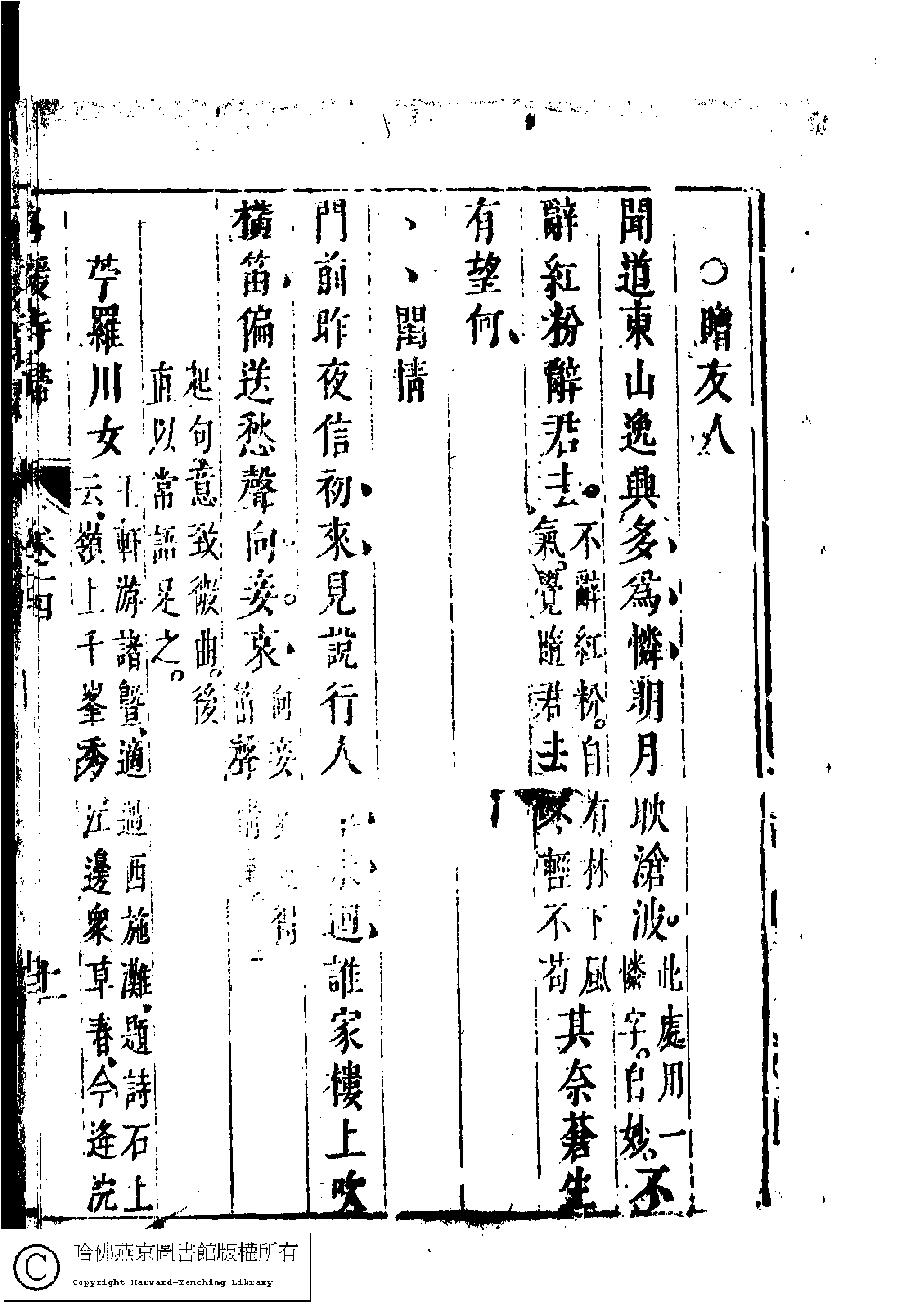 〇贈友人
聞道東山逸興多爲憐明月耿滄波此處用一憐字。自妙、不
辭紅粉辭君去不辭紅粉。自有林下風氣。覺隨君去不輕不苟其奈蒼生
有望何
閨情
門前昨夜信初來見說行人過誰家樓上吹
橫笛偏送愁聲向妾哀向妾笛聲
起句意致微曲。後
直以常語足之。
苧羅川女王軒游諸暨、適過西施灘、題詩石上
云、嶺上千峯秀江邊衆草春、今逢浣
卷十四
哈佛燕京圖書館版權所有
Copyright Harvard-Yenching Library